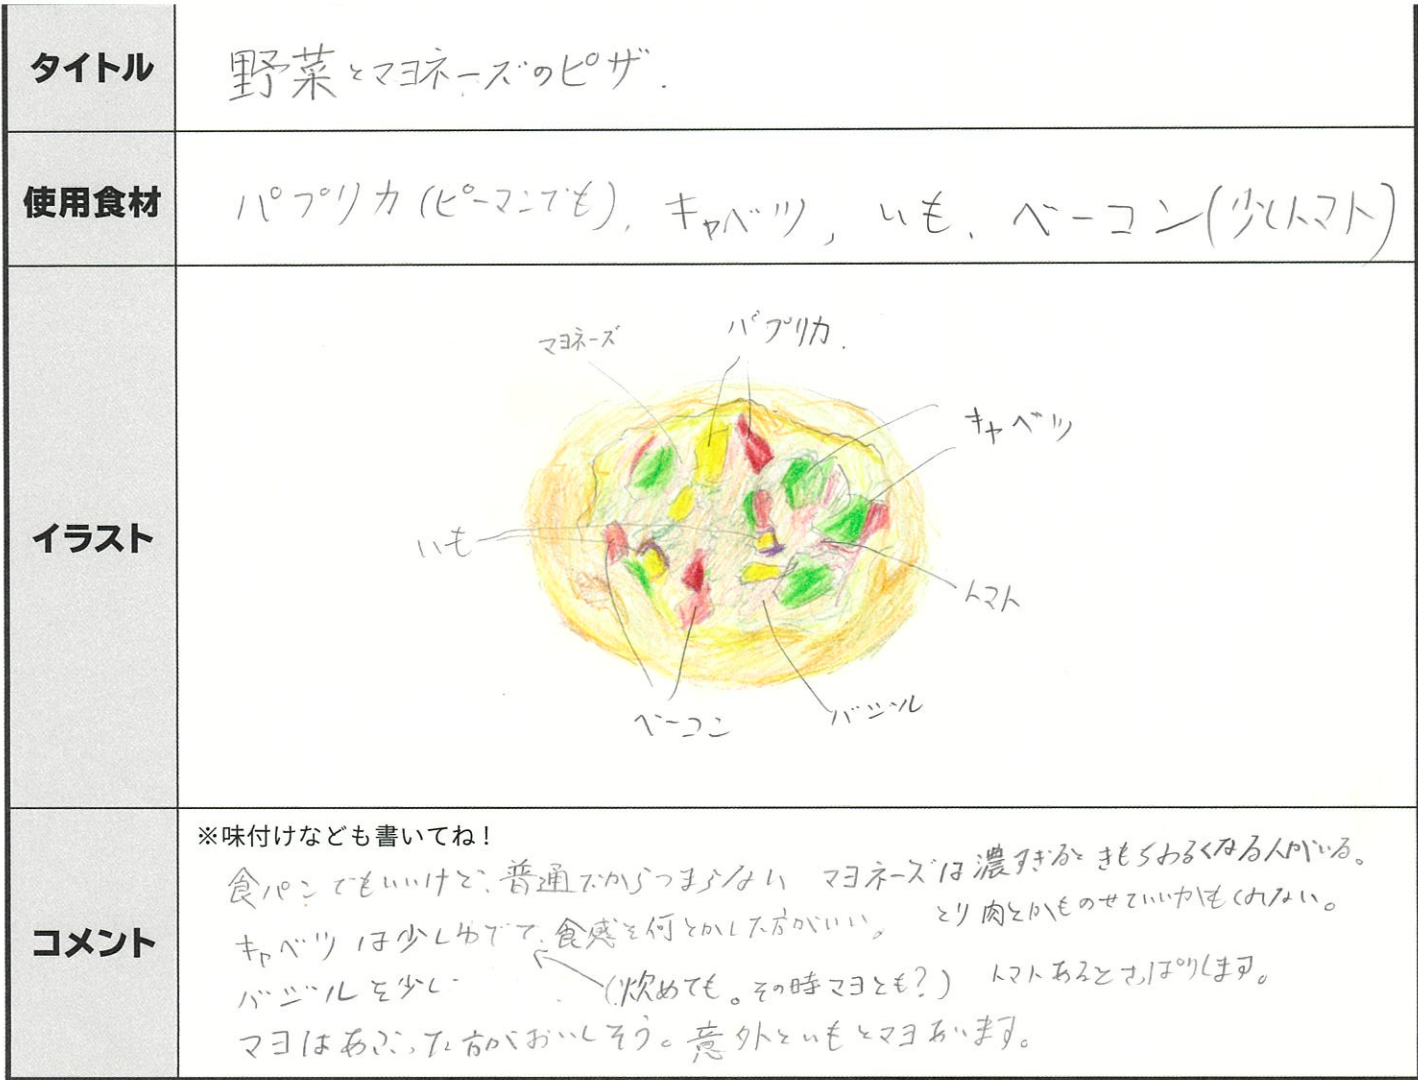 タイトル
野菜とマヨネーズのピザ.
使用食材
パプリカ(ピーマンでも), キャベツ, いも, ベーコン(少しトマト)
イラスト
マヨネーズ
パプリカ.
キャベツ
いも
トマト
ベーコン
バジル
コメント
※味付けなども書いてね!
食パンでもいいけど、普通だからつまらない マヨネーズは濃すぎるときもちわるくなる人がいる。
キャベツは少しゆでて、食感を何とかした方がいい。 とり肉とかものせていいかもしれない。
バジルを少し (炒めても。その時マヨとも?) トマトあるとさっぱりします。
マヨはあぶった方がおいしそう。意外といもとマヨあいます。